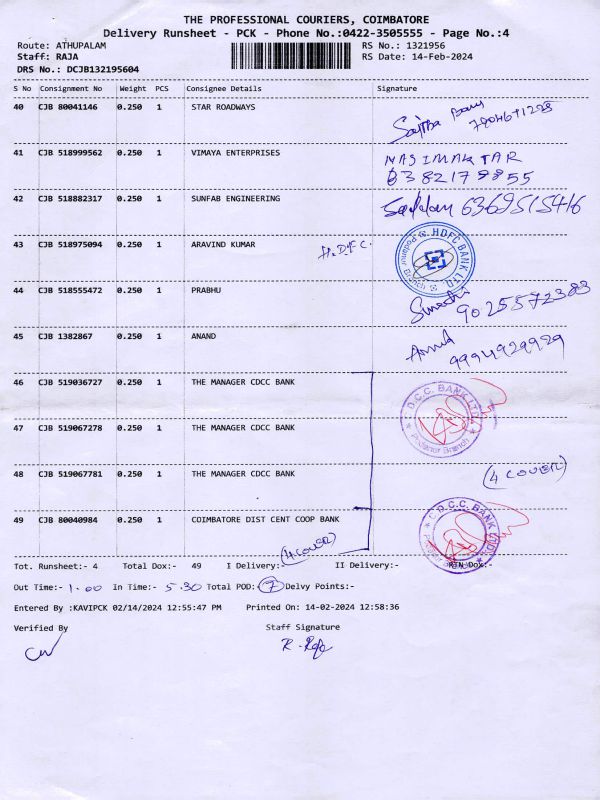 THE PROFESSIONAL COURIERS, COIMBATORE
Delivery Runsheet - PCK - Phone No.:0422-3505555 - Page No.:4
Route: ATHUPALAM RS No.: 1321956
Staff: RAJA RS Date: 14-Feb-2024
DRS No.: DCJB132195604
S No Consignment No Weight PCS Consignee Details Signature
40 CJB 80041146 0.250 1 STAR ROADWAYS
41 CJB 518999562 0.250 1 VIMAYA ENTERPRISES NASIMAKTAR
6382179855
42 CJB 518882317 0.250 1 SUNFAB ENGINEERING
43 CJB 518975094 0.250 1 ARAVIND KUMAR H.D.F.C. HDFC BANK LTD. Podanur Branch
44 CJB 518555472 0.250 1 PRABHU 9025572383
45 CJB 1382867 0.250 1 ANAND Anand 9994929929
46 CJB 519036727 0.250 1 THE MANAGER CDCC BANK D.C.C. BANK LTD. Podanur Branch
47 CJB 519067278 0.250 1 THE MANAGER CDCC BANK
48 CJB 519067781 0.250 1 THE MANAGER CDCC BANK (4 COVER)
49 CJB 80040984 0.250 1 COIMBATORE DIST CENT COOP BANK D.C.C. BANK LTD. Podanur Branch
(4 COVER)
Tot. Runsheet:- 4 Total Dox:- 49 I Delivery:- II Delivery:- RTN Dox:-
Out Time:- 1.00 In Time:- 5.30 Total POD: 7 Delvy Points:-
Entered By :KAVIPCK 02/14/2024 12:55:47 PM Printed On: 14-02-2024 12:58:36
Verified By Staff Signature
R. Raja